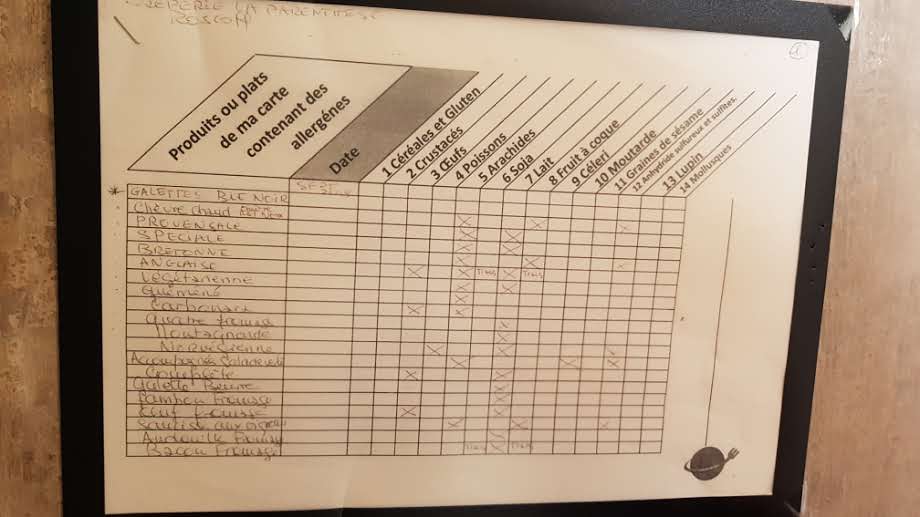 CREPERIE LA PARENTHESE
ROSCOFF
1
Produits ou plats
de ma carte
contenant des
allergénes
Date
1 Céréales et Gluten
2 Crustacés
3 Œufs
4 Poissons
5 Arachides
6 Soja
7 Lait
8 Fruit à coque
9 Céleri
10 Moutarde
11 Graines de sésame
12 Anhydride sulfureux et sulfites.
13 Lupin
14 Mollusques
* GALETTES BLE NOIR
Chèvre chaud
PROVENCALE X X X
SPECIALE X X
BRETONNE X X
ANGLAISE X X X
Végétarienne X X Traces X Traces
Guémené X X
Carbonara X
Quatre fromages X X
Montagnarde X
Norvégienne X
Accompagnée Salade verte X X X
Complète X X X
Galette Beurre X
Jambon Fromage X
Œuf fromage X X
Saucisse aux oignons X X X
Andouille Fromage X
Bacon Fromage Traces X Traces